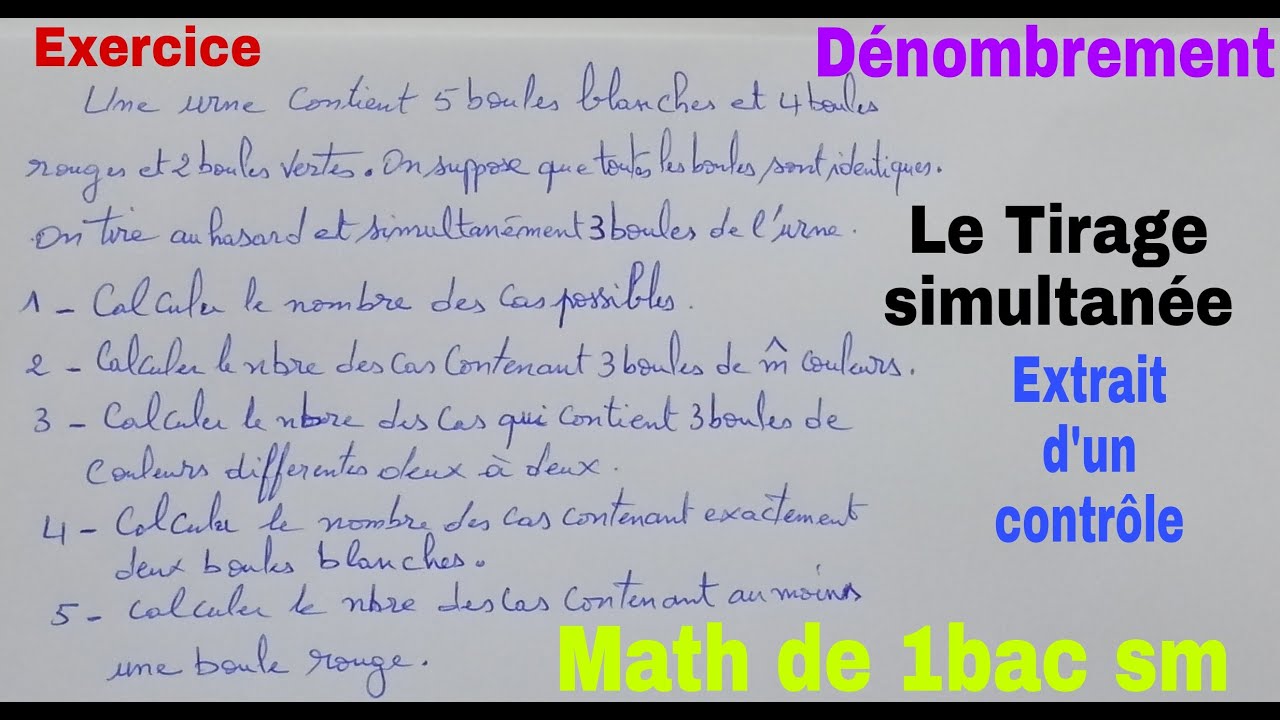 Exercice
Dénombrement
Une urne contient 5 boules blanches et 4 boules
rouges et 2 boules vertes. On suppose que toutes les boules sont identiques.
On tire au hasard et simultanément 3 boules de l'urne.
1 - Calculer le nombre des cas possibles.
2 - Calculer le nbre des cas contenant 3 boules de m̂ couleurs.
3 - Calculer le nbre des cas qui contient 3 boules de
couleurs differentes deux à deux.
4 - Calculer le nombre des cas contenant exactement
deux boules blanches.
5 - calculer le nbre des cas contenant au moins
une boule rouge.
Le Tirage
simultanée
Extrait
d'un
contrôle
Math de 1bac sm